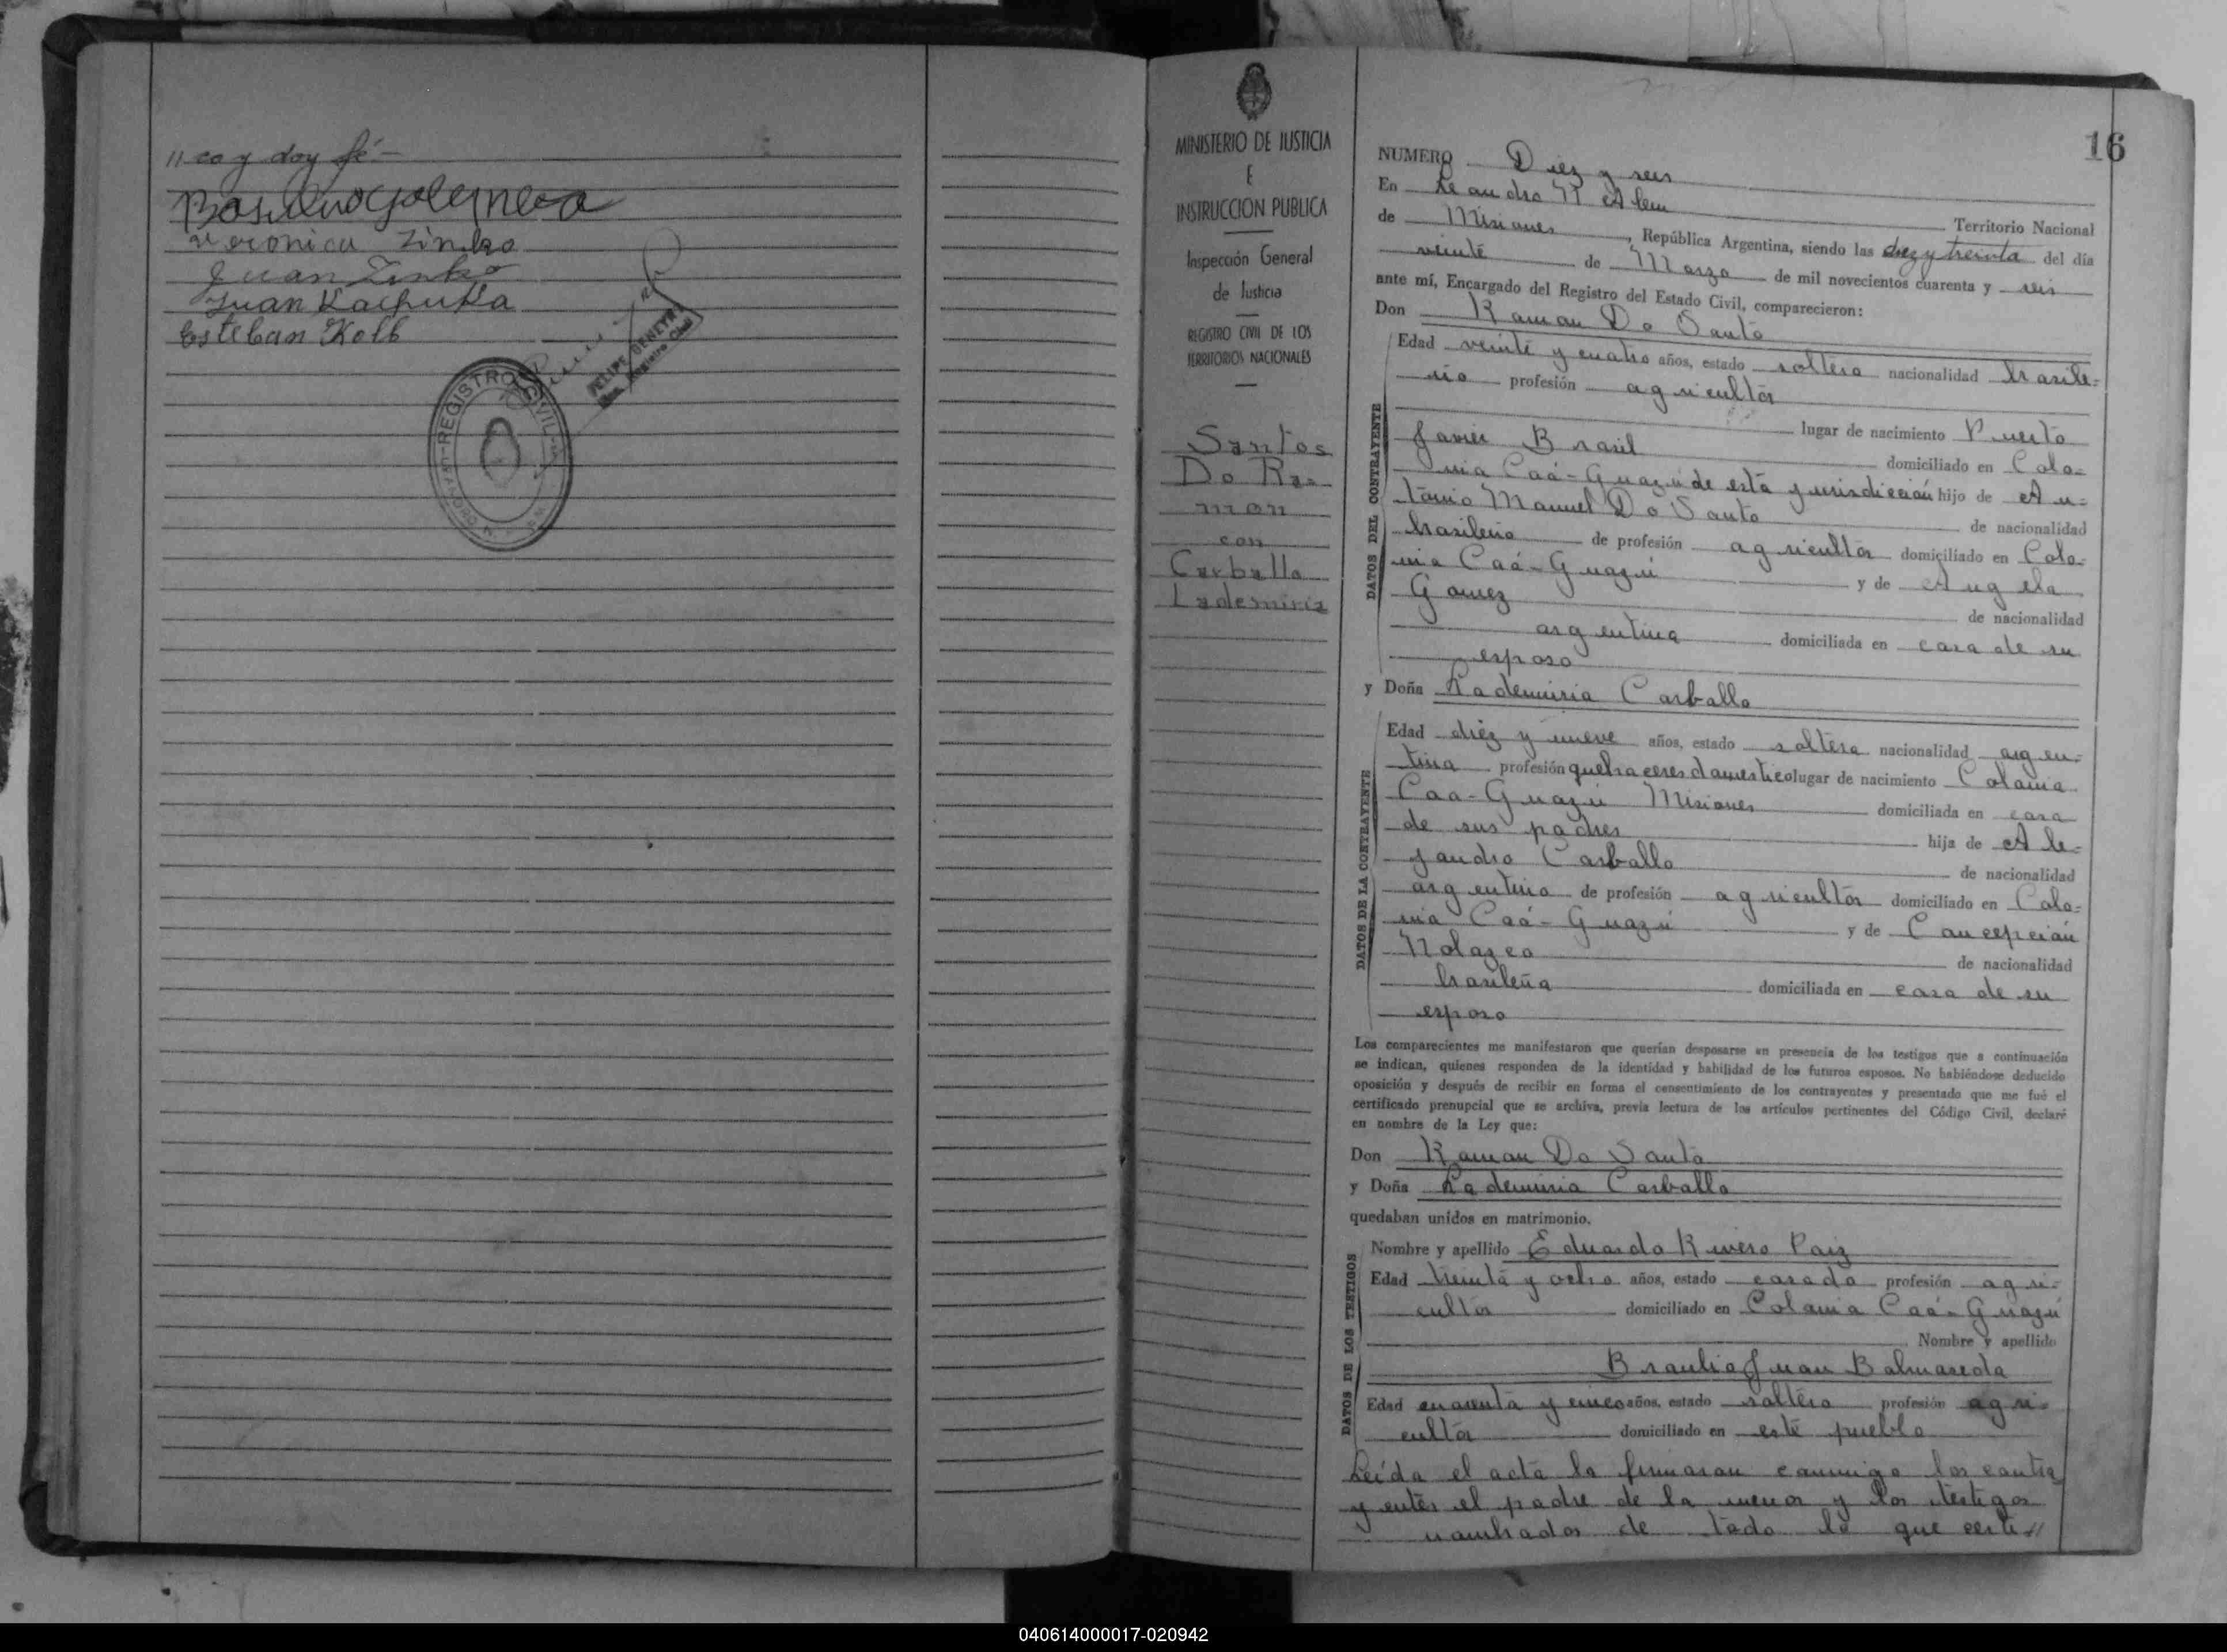 //co y doy fé.-
Veronica Zinko
Juan Zinko
Juan Kachuka
Esteban Kolb
FELIPE
Registro Civil
REGISTRO CIVIL
MINISTERIO DE JUSTICIA
E
INSTRUCCION PUBLICA
Inspección General
de Justicia
REGISTRO CIVIL DE LOS
TERRITORIOS NACIONALES
Santos
Do Ra=
mon
con
Carballo
Lademiria
16
NUMERO Diez y seis
En Leandro N Alem
Territorio Nacional
de Misiones, República Argentina, siendo las diez y treinta del día
veinte de Marzo de mil novecientos cuarenta y seis
ante mí, Encargado del Registro del Estado Civil, comparecieron:
Don Ramon Do Santo
DATOS DEL CONTRAYENTE
Edad veinte y cuatro años, estado soltero nacionalidad brasile=
ño profesión agricultor
lugar de nacimiento Puerto
Javier Brasil domiciliado en Colo=
nia Caá-Guazú de esta jurisdicción hijo de An=
tonio Manuel Do Santo de nacionalidad
brasileño de profesión agricultor domiciliado en Colo=
nia Caá-Guazú y de Angela
Gomez de nacionalidad
argentina domiciliada en casa de su
esposo
y Doña Lademiria Carballo
DATOS DE LA CONTRAYENTE
Edad diez y nueve años, estado soltera nacionalidad argen=
tina profesión quehaceres domestico lugar de nacimiento Colonia
Caa-Guazú Misiones domiciliada en casa
de sus padres hija de Ale=
jandro Carballo de nacionalidad
argentino de profesión agricultor domiciliado en Colo=
nia Caá-Guazú y de Concepción
Nolazco de nacionalidad
brasileña domiciliada en casa de su
esposo
Los comparecientes me manifestaron que querían desposarse en presencia de los testigos que a continuación
se indican, quienes responden de la identidad y habilidad de los futuros esposos. No habiéndose deducido
oposición y después de recibir en forma el consentimiento de los contrayentes y presentado que me fué el
certificado prenupcial que se archiva, previa lectura de los artículos pertinentes del Código Civil, declaré
en nombre de la Ley que:
Don Ramon Do Santo
y Doña Lademiria Carballo
quedaban unidos en matrimonio.
DATOS DE LOS TESTIGOS
Nombre y apellido Eduardo Rivero Paiz
Edad treinta y ocho años, estado casado profesión agri=
cultor domiciliado en Colonia Caá-Guazú
Nombre y apellido
Braulio Juan Balmaseda
Edad cuarenta y cinco años, estado soltero profesión agri=
cultor domiciliado en este pueblo
Leída el acta la firmaron conmigo los contra
yentes el padre de la menor y los testigos
nombrados de todo lo que certi//
040614000017-020942